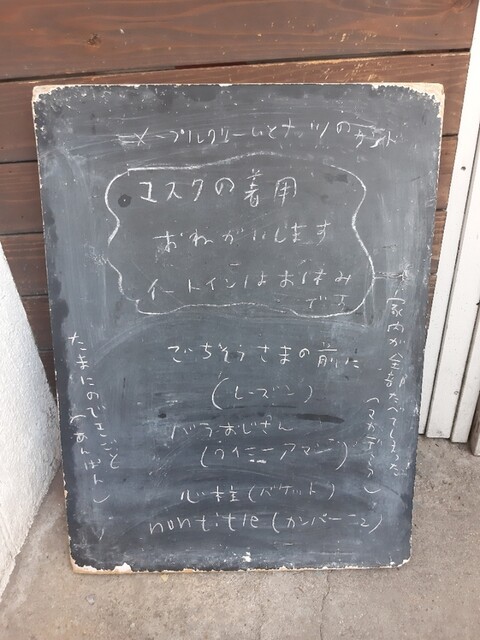 メープルクリームとナッツのサンド
マスクの着用
おねがいします
イートインはお休み
です
ごちそうさまの前に
(レーズン)
バラおじさん
(ライ アマン)
心柱(バケット)
non title (カンパーニュ)
家内が全部たべてしまった
たまにのできごと
(あんぱん)